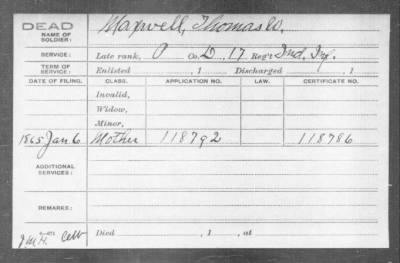 DEAD Maxwell, Thomas W.
NAME OF SOLDIER:
SERVICE: Late rank, P Co. D, 17 Reg't Ind. Inf.
TERM OF SERVICE: Enlisted , 1 Discharged , 1
DATE OF FILING. CLASS. APPLICATION NO. LAW. CERTIFICATE NO.
Invalid,
Widow,
Minor,
1865 Jan 6 Mother 118792 118786
ADDITIONAL SERVICES:
REMARKS:
Died , 1 , at